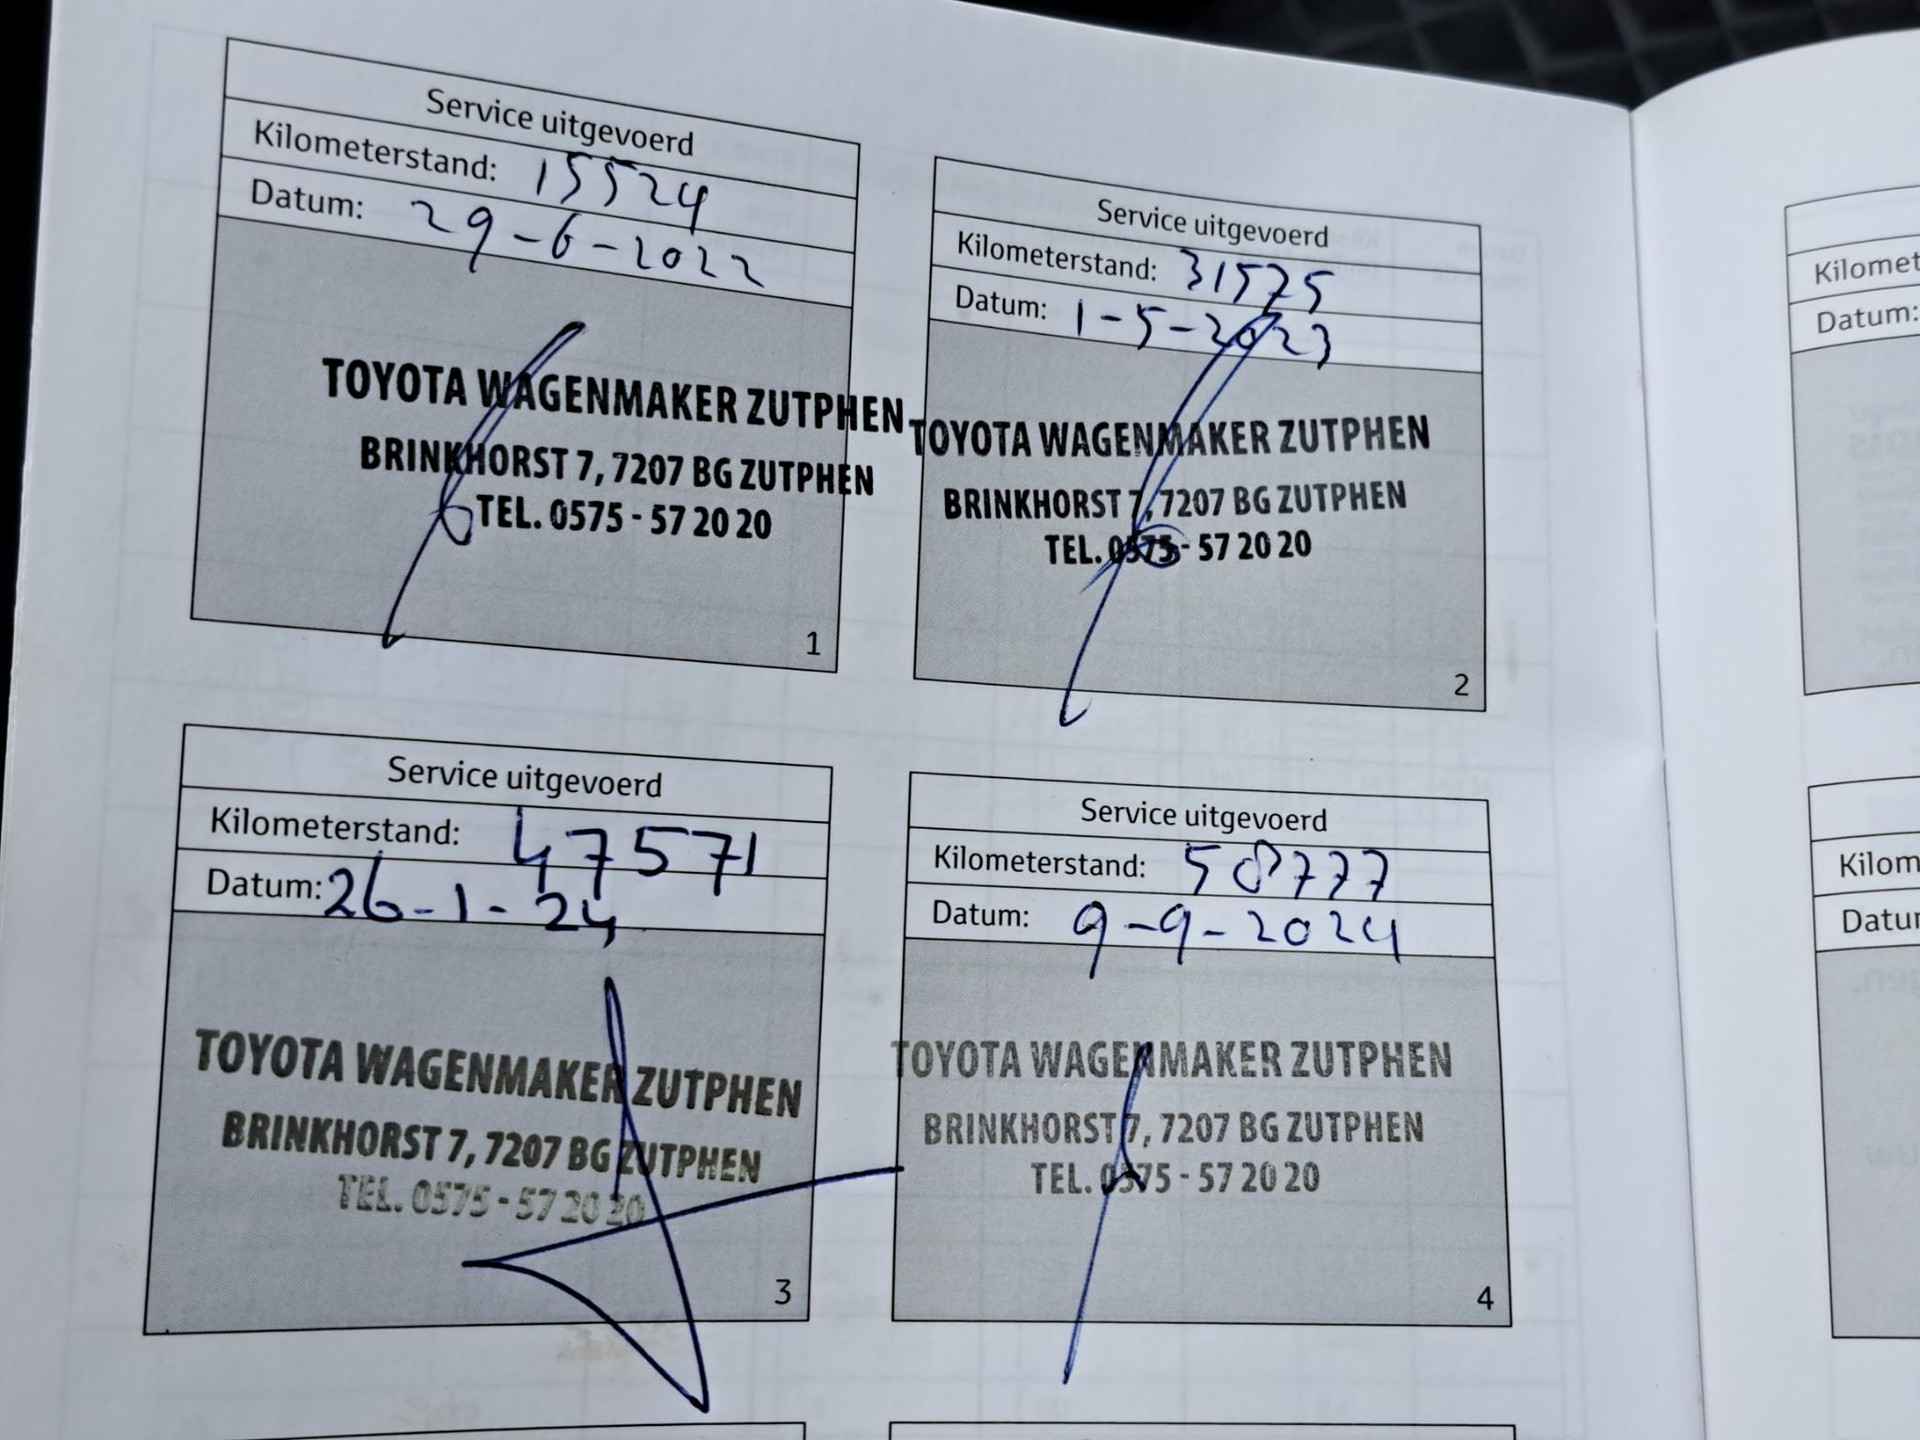 Service uitgevoerd
Kilometerstand: 15524
Datum: 29-6-2022
TOYOTA WAGENMAKER ZUTPHEN
BRINKHORST 7, 7207 BG ZUTPHEN
TEL. 0575 - 57 20 20
1
Service uitgevoerd
Kilometerstand: 31575
Datum: 1-5-2023
TOYOTA WAGENMAKER ZUTPHEN
BRINKHORST 7, 7207 BG ZUTPHEN
TEL. 0575 - 57 20 20
2
Service uitgevoerd
Kilometerstand: 47571
Datum: 26-1-24
TOYOTA WAGENMAKER ZUTPHEN
BRINKHORST 7, 7207 BG ZUTPHEN
TEL. 0575 - 57 20 20
3
Service uitgevoerd
Kilometerstand: 58777
Datum: 9-9-2024
TOYOTA WAGENMAKER ZUTPHEN
BRINKHORST 7, 7207 BG ZUTPHEN
TEL. 0575 - 57 20 20
4
Kilomet
Datum:
Kilom
Datu